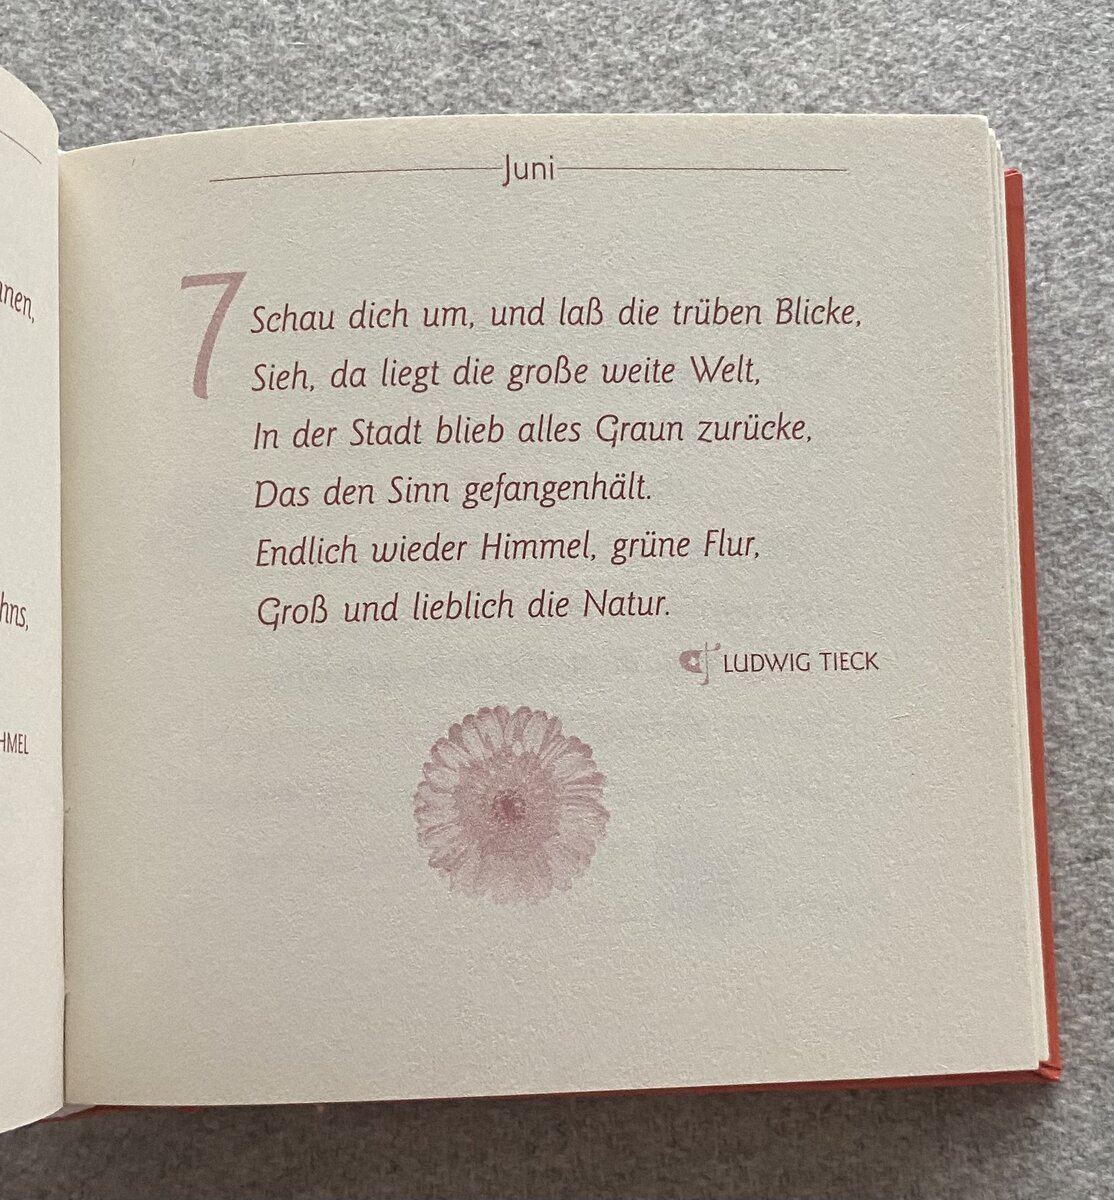 Juni
7
Schau dich um, und laß die trüben Blicke,
Sieh, da liegt die große weite Welt,
In der Stadt blieb alles Graun zurücke,
Das den Sinn gefangenhält.
Endlich wieder Himmel, grüne Flur,
Groß und lieblich die Natur.
LUDWIG TIECK